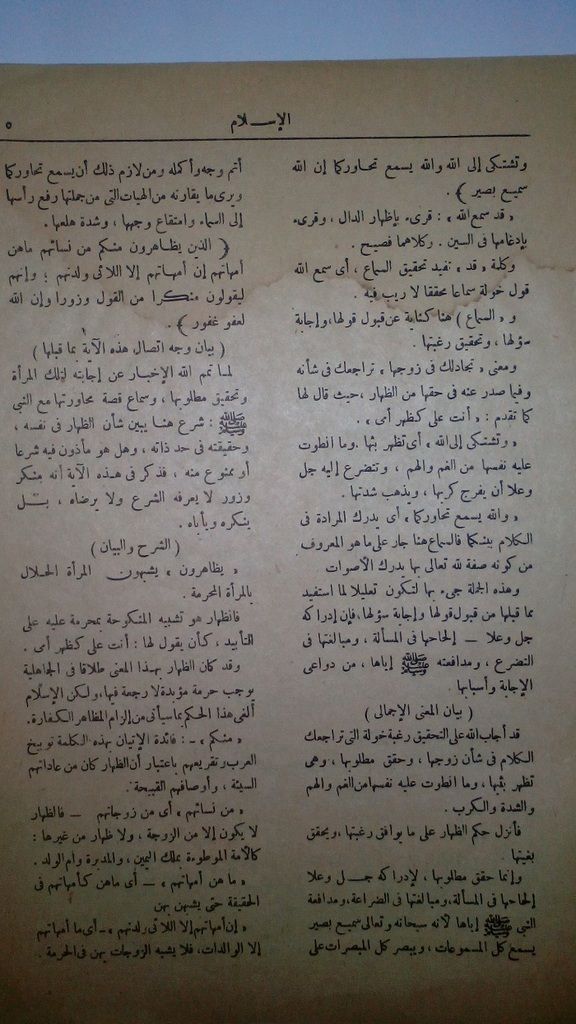 الإسلام
٥
وتشتكى إلى الله والله يسمع تحاوركما إن الله
سميع بصير ﴾ .
« قد سمع الله » : قرىء بإظهار الدال ، وقرىء
بإدغامها فى السين . وكلاهما فصيح .
وكلمة « قد » تفيد تحقيق السماع ، أى سمع الله
قول خولة سماعا محققا لا ريب فيه .
و ( السماع ) هنا كناية عن قبول قولها، وإجابة
سؤلها ، وتحقيق رغبتها .
ومعنى « تجادلك فى زوجها » تراجعك فى شأنه
وفيما صدر عنه فى حقها من الظهار ، حيث قال لها
كما تقدم : « أنت على كظهر أمى » .
« وتشتكى إلى الله » أى تظهر بثها . وما انطوت
عليه نفسها من الغم والهم ، وتتضرع إليه جل
وعلا أن يفرج كربها ، ويذهب شدتها .
« والله يسمع تحاوركما » أى يدرك المرادة فى
الكلام بينكما فالسماع هنا جار على ما هو المعروف
من كونه صفة لله تعالى بها يدرك الأصوات
وهذه الجملة جىء بها لتكون تعليلا لما استفيد
مما قبلها من قبول قولها وإجابة سؤلها، فإن إدراكه
جل وعلا — إلحاحها فى المسألة ، ومبالغتها فى
التضرع ، ومدافعته ﷺ إياها ، من دواعى
الإجابة وأسبابها .
( بيان المعنى الإجمالى )
قد أجاب الله على التحقيق رغبة خولة التى تراجعك
الكلام فى شأن زوجها ، وحقق مطلوبها ، وهى
تظهر بثها ، وما انطوت عليه نفسها من الغم والهم
والشدة والكرب .
فأنزل حكم الظهار على ما يوافق رغبتها ، ويحقق
بغيتها .
وإنما حقق مطلوبها ، لإدراكه جل وعلا
إلحاحها فى المسألة، ومبالغتها فى الضراعة، ومدافعة
النبى ﷺ إياها لأنه سبحانه وتعالى سميع بصير
يسمع كل المسموعات ، ويبصر كل المبصرات على
أتم وجه وأكمله ومن لازم ذلك أن يسمع تحاوركما
ويرى ما يقارنه من الهيات التى من جملتها رفع رأسها
إلى السماء وامتقاع وجهها ، وشدة هلعها .
﴿ الذين يظاهرون منكم من نسائهم ماهن
أمهاتهم إن أمهاتهم إلا اللائى ولدنهم ؛ وإنهم
ليقولون منكرا من القول وزورا وإن الله
لعفو غفور ﴾ .
( بيان وجه اتصال هذه الآية بما قبلها )
لما تمم الله الإخبار عن إجابته لتلك المرأة
وتحقيق مطلوبها ، وسماع قصة محاورتها مع النبى
ﷺ : شرع هنا يبين شأن الظهار فى نفسه ،
وحقيقته فى حد ذاته ، وهل هو مأذون فيه شرعا
أو ممنوع منه ، فذكر فى هذه الآية أنه منكر
وزور لا يعرفه الشرع ولا يرضاه ، بل
ينكره ويأباه .
( الشرح والبيان )
« يظاهرون » يشبهون المرأة الحلال
بالمرأة المحرمة .
فالظهار هو تشبيه المنكوحة بمحرمة عليه على
التأبيد ، كأن يقول لها : أنت على كظهر أمى .
وقد كان الظهار بهذا المعنى طلاقا فى الجاهلية
يوجب حرمة مؤبدة لا رجعة فيها، ولكن الإسلام
ألغى هذا الحكم بما سيأتى من إلزام المظاهر الكفارة.
« منكم » - : فائدة الإتيان بهذه الكلمة توبيخ
العرب وتقريعهم باعتبار أن الظهار كان من عاداتهم
السيئة ، وأوصافهم القبيحة .
« من نسائهم » أى من زوجاتهم — فالظهار
لا يكون إلا من الزوجة ، ولا ظهار من غيرها :
كالأمة الموطوءة بملك اليمين ، والمدبرة وأم الولد .
« ما هن أمهاتهم » — أى ماهن كأمهاتهم فى
الحقيقة حتى يشبهن بهن
« إن أمهاتهم إلا اللائى ولدنهم » - أى ما أمهاتهم
إلا الوالدات، فلا يشبه الزوجات بهن فى الحرمة .